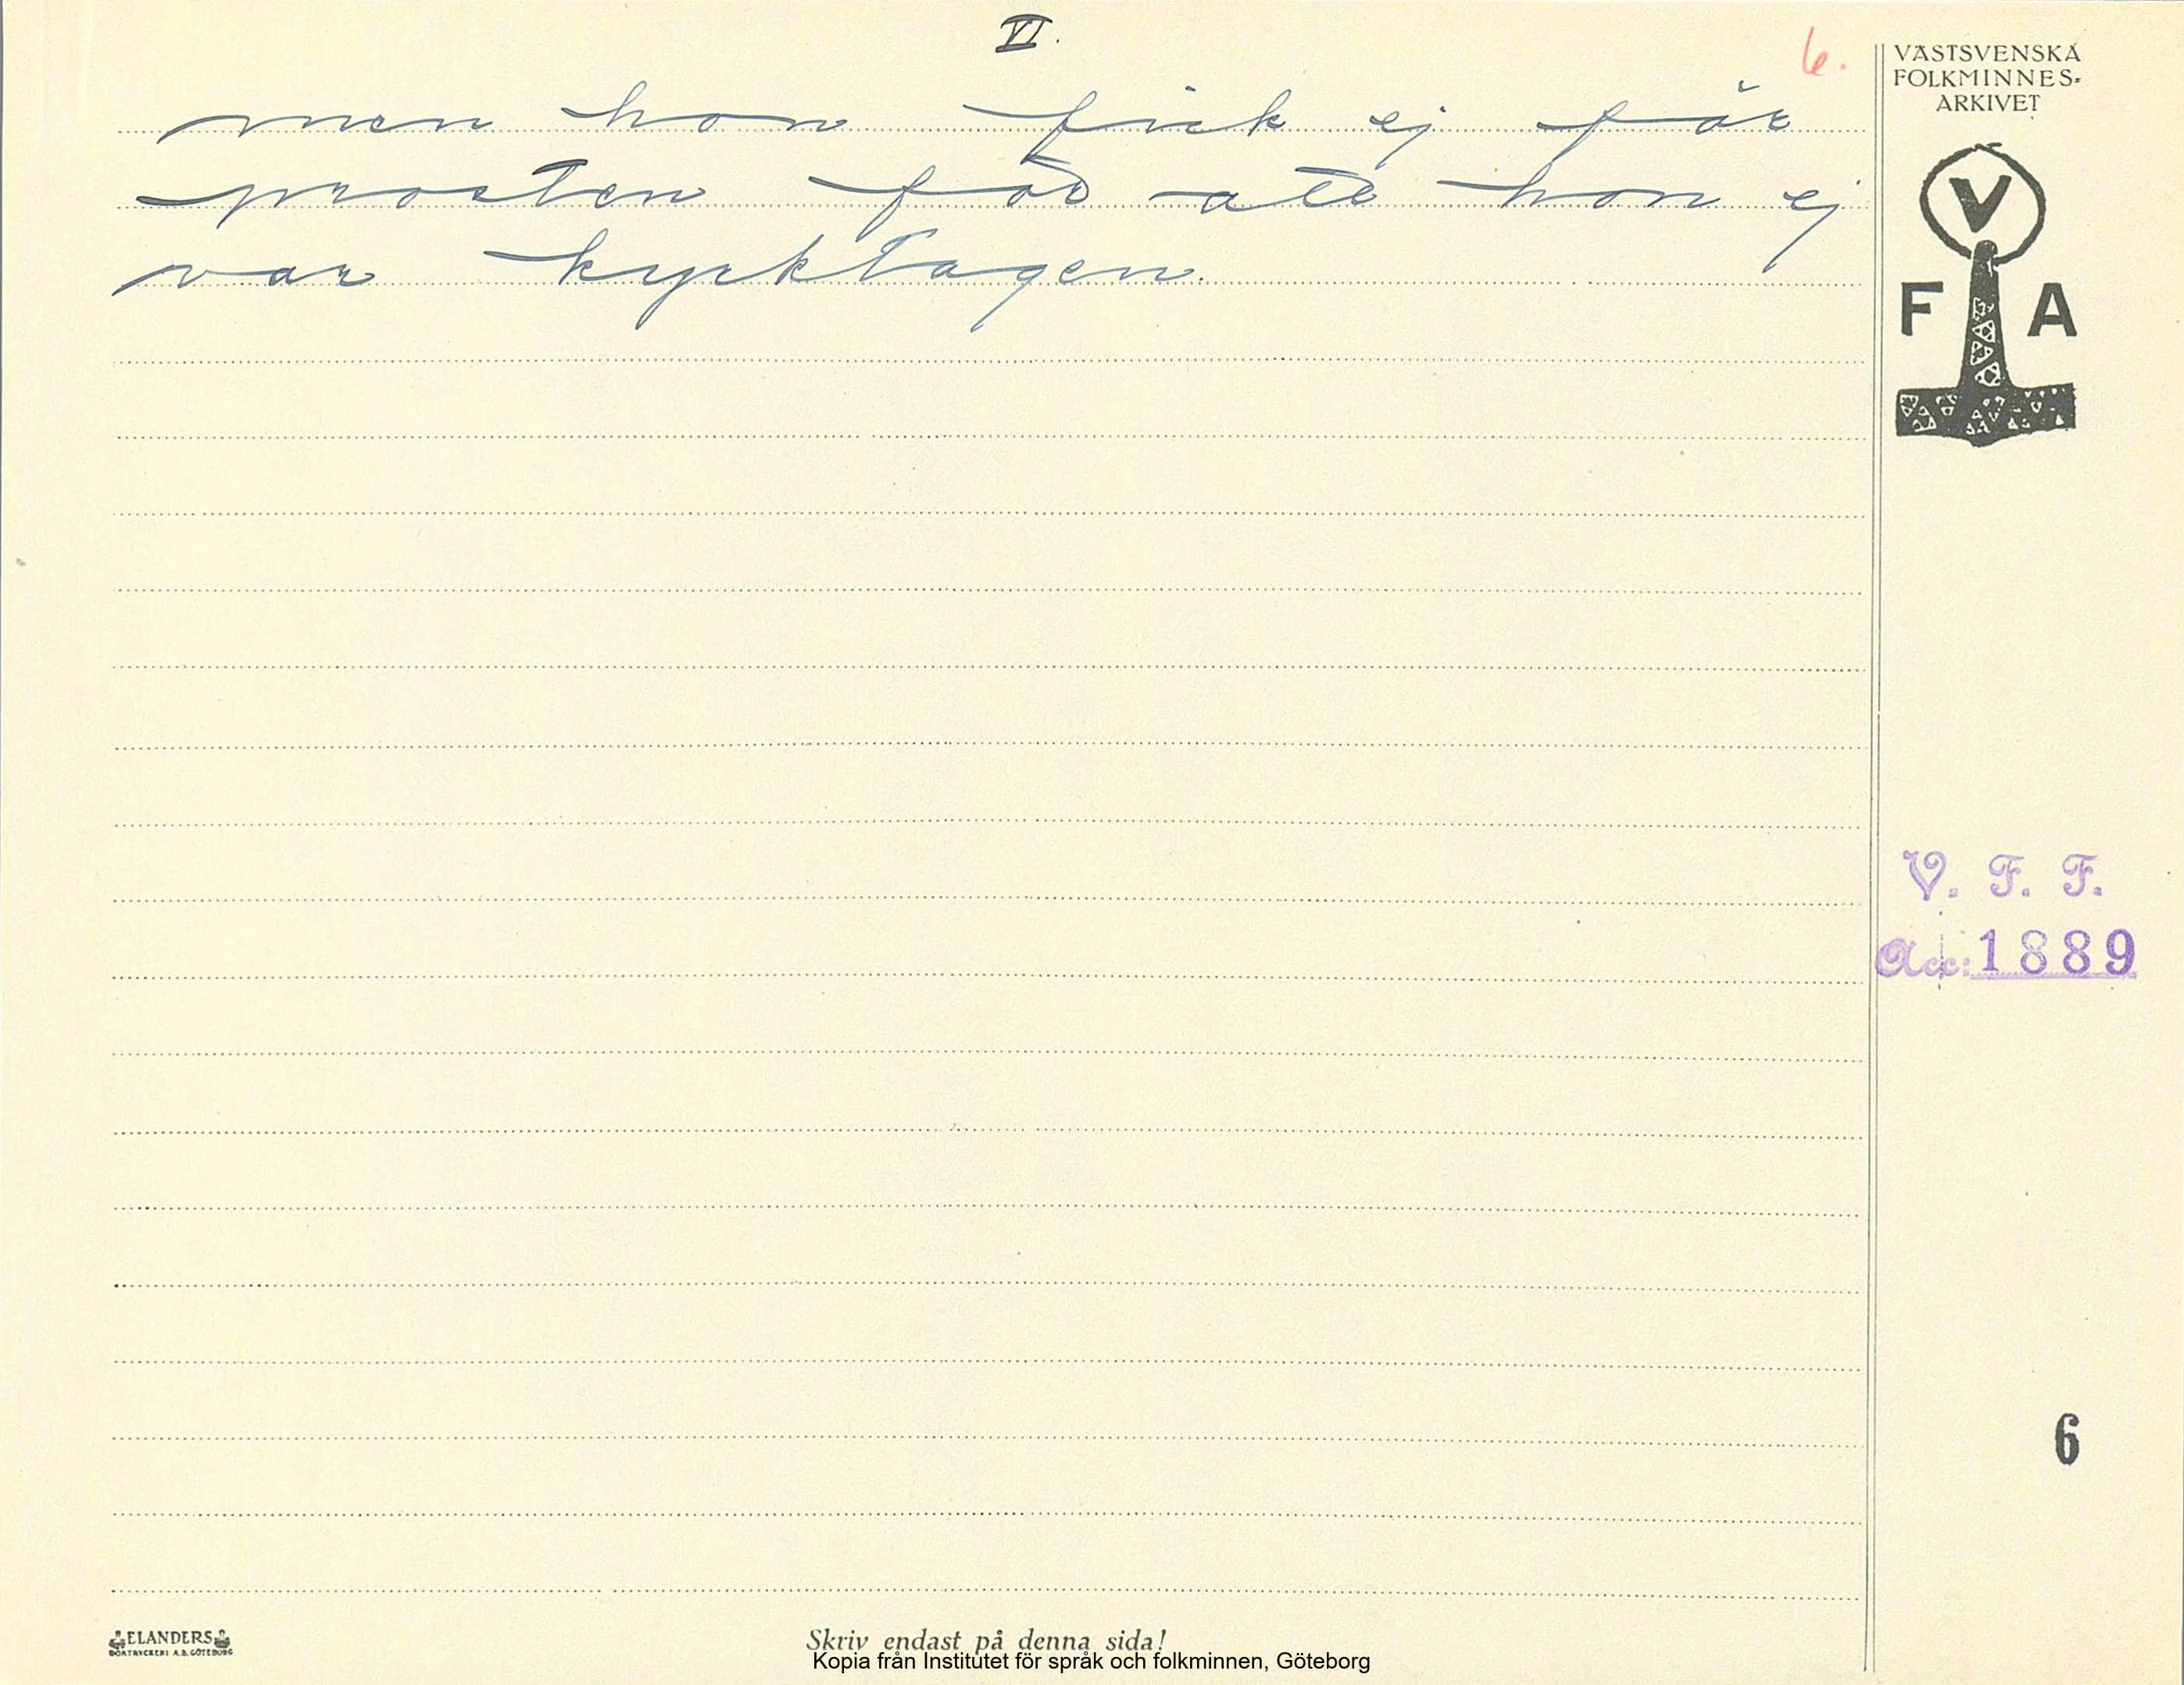 VI.
6.
men hon fick ej för
prosten för att hon ej
var kyrktagen.
VÄSTSVENSKA
FOLKMINNES-
ARKIVET
V
F A
V. F. F.
Acc: 1889
6
ELANDERS
BOKTRYCKERI A.B. GÖTEBORG
Skriv endast på denna sida!
Kopia från Institutet för språk och folkminnen, Göteborg